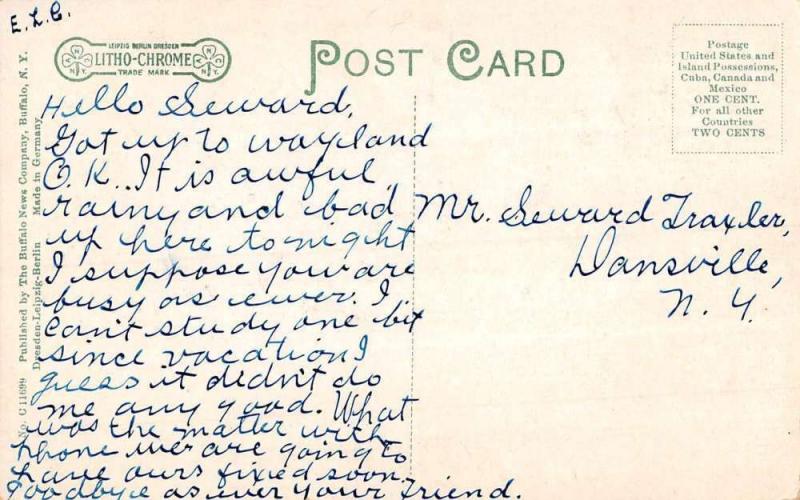 E. L. C.
LEIPZIG BERLIN DRESDEN
LITHO-CHROME
TRADE MARK
N.Y.
N.Y.
POST CARD
Postage
United States and
Island Possessions,
Cuba, Canada and
Mexico
ONE CENT.
For all other
Countries
TWO CENTS
No. C11699 Published by The Buffalo News Company, Buffalo, N. Y.
Dresden-Leipzig-Berlin Made in Germany
Hello Seward,
Got up to wayland
O. K.. It is awful
rainy and bad
up here to night
I suppose you are
busy as ever. I
can't study one bit
since vacation I
guess it didn't do
me any good. What
was the matter with
phone we are going to
have ours fixed soon.
Goodbye as ever your friend.
Mr. Seward Traxler,
Dansville,
N. Y.